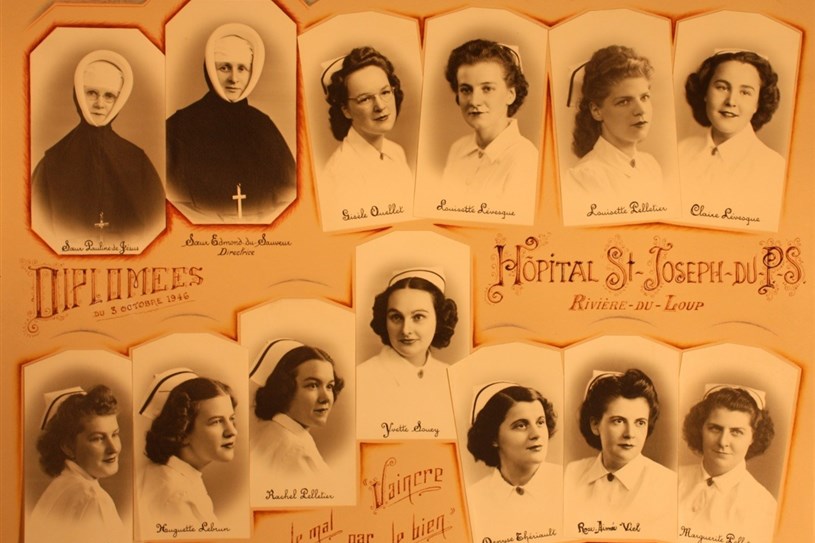 Sœur Pauline de Jésus
Sœur Edmond-du-Sauveur
Directrice
Gisèle Ouellet
Louisette Lévesque
Louisette Pelletier
Claire Lévesque
DIPLOMÉES
DU 3 OCTOBRE 1946
HÔPITAL ST-JOSEPH-DU-P-S.
RIVIÈRE-DU-LOUP
Huguette Lebrun
Rachel Pelletier
Yvette Soucy
Denyse Thériault
Rose-Aimée Viel
Marguerite
"Vaincre
le mal par le bien"